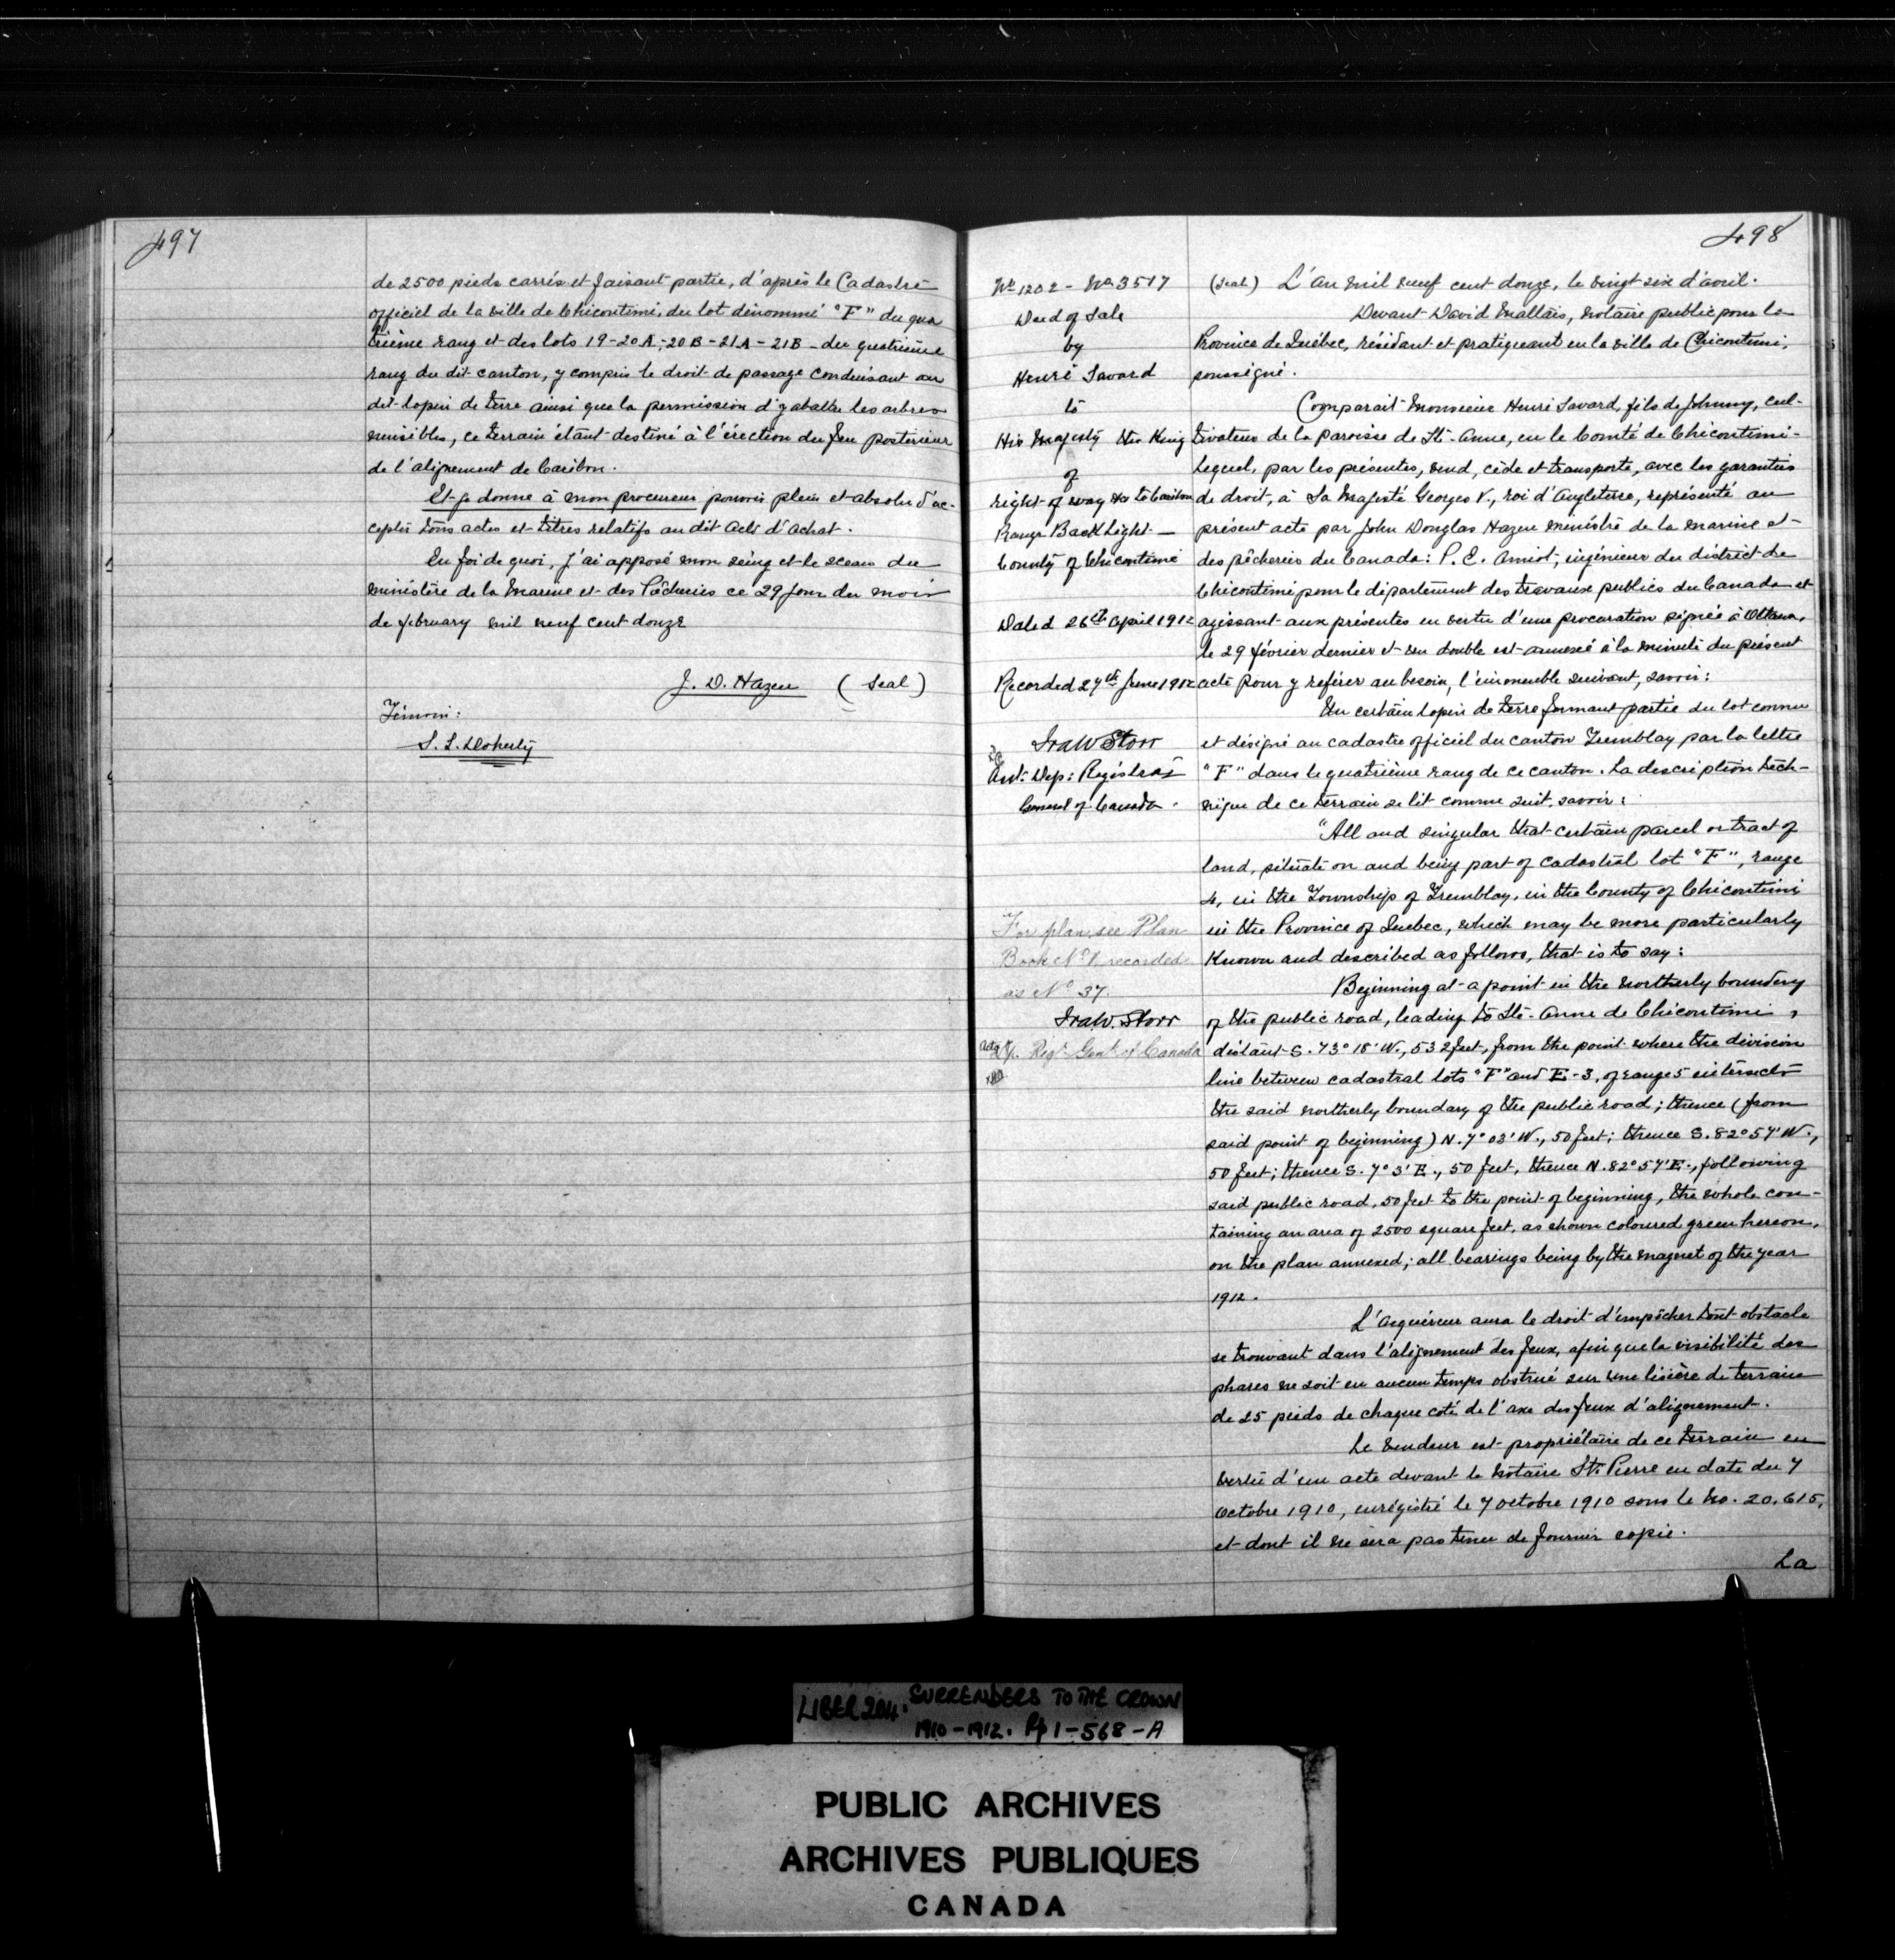 497
de 2500 pieds carrés et faisant partie, d'après le Cadastre
officiel de la ville de Chicoutimi, du lot dénommé "F" du qua
trième rang et des lots 19-20A-20B-21A-21B- du quatrième
rang du dit canton, y compris le droit de passage conduisant au
dit lopin de terre ainsi que la permission d'y abattre les arbres
nuisibles, ce terrain étant destiné à l'érection du feu postérieur
de l'alignement de Caribou.
Et je donne à mon procureur pouvoir plein et absolu d'ac-
cepter tous actes et titres relatifs au dit acte d'achat.
En foi de quoi, j'ai apposé mon seing et le sceau du
ministère de la Marine et des Pêcheries ce 29 jour du mois
de february mil neuf cent douze
J. D. Hazen (Seal)
Témoin:
S. L. Doherty
498
No 1202 - No 3517
Deed of Sale
by
Henri Savard
to
His Majesty the King
of
right of way to Caribou
Range Back Light -
County of Chicoutimi
Dated 26th April 1912
Recorded 27th June 1912
Ira W Storr
Act: Dep: Registrar
General of Canada.
For plan see Plan
Book No 1 recorded
as No 37.
Ira W. Storr
Actg Dy. Regr. Genl. of Canada
(Seal) L'An mil neuf cent douze, le vingt six d'avril.
Devant David Maltais, notaire public pour la
Province de Québec, résidant et pratiquant en la ville de Chicoutimi,
soussigné.
Comparait Monsieur Henri Savard, fils de Johnny, cul-
tivateur de la paroisse de Ste-Anne, en le Comté de Chicoutimi-
Lequel, par les présentes, vend, cède et transporte, avec les garanties
de droit, à Sa Majesté Georges V., roi d'Angleterre, représenté au
présent acte par John Douglas Hazen ministre de la marine et
des pêcheries du Canada: P. E. Amiot, ingénieur du district de
Chicoutimi pour le département des travaux publics du Canada et
agissant aux présentes en vertu d'une procuration signée à Ottawa,
le 29 février dernier et un double est annexé à la minute du présent
acte pour y référer au besoin, l'immeuble suivant, savoir:
Un certain lopin de terre formant partie du lot connu
et désigné au cadastre officiel du canton Tremblay par la lettre
"F" dans le quatrième rang de ce canton. La description tech-
nique de ce terrain se lit comme suit, savoir:
"All and singular that certain parcel or tract of
land, situate on and being part of cadastral lot "F", range
4, in the Township of Tremblay, in the County of Chicoutimi
in the Province of Quebec, which may be more particularly
known and described as follows, that is to say:
Beginning at a point in the northerly boundery
of the public road, leading to Ste-Anne de Chicoutimi,
distant S. 73° 18' W., 532 feet, from the point where the division
line between cadastral lots "F" and E-3, of range 5 intersects
the said northerly boundary of the public road; thence (from
said point of beginning) N. 7° 03' W., 50 feet; thence S. 82° 57' W.,
50 feet; thence S. 7° 3' E., 50 feet, thence N. 82° 57' E., following
said public road, 50 feet to the point of beginning, the whole con-
taining an area of 2500 square feet, as shown coloured green hereon,
on the plan annexed; all bearings being by the magnet of the year
1912.
L'acquéreur aura le droit d'empêcher tout obstacle
se trouvant dans l'alignement des feux, afin que la visibilité des
phares ne soit en aucun temps obstrué sur une lisière de terrain
de 25 pieds de chaque coté de l'axe des feux d'alignement.
Le vendeur est propriétaire de ce terrain en
vertu d'un acte devant le notaire St. Pierre en date du 7
octobre 1910, enrégistré le 7 octobre 1910 sous le no. 20,615,
et dont il ne sera pas tenu de fournir copie.
La
LIBER 204. SURRENDERS TO THE CROWN
1910-1912. Pp 1-568-A
PUBLIC ARCHIVES
ARCHIVES PUBLIQUES
CANADA